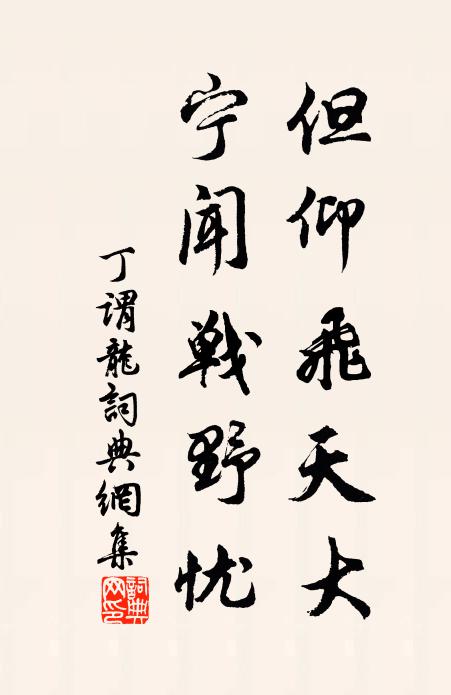 但仰飛天大
宁闻戦野忧
丁谓龍詞典網集
詞典网印